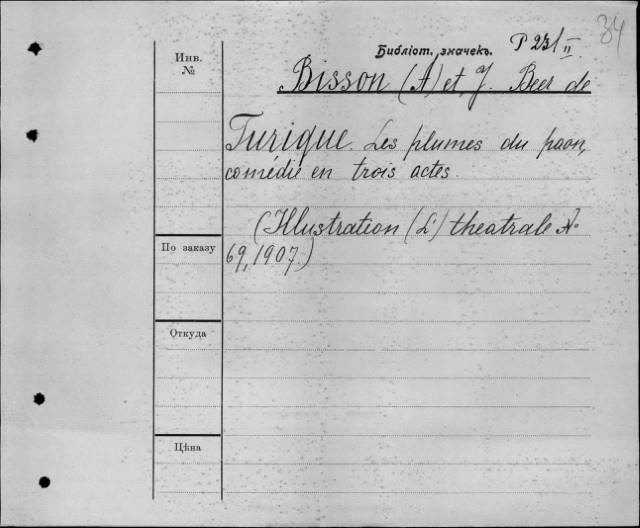 84
Библіот. значекъ. P 231/II
Инв.
№
Bisson (A) et J. Beer de
Turique. Les plumes du paon,
comédie en trois actes.
(Illustration (L') théatrale №
69, 1907.)
По заказу
Откуда
Цѣна